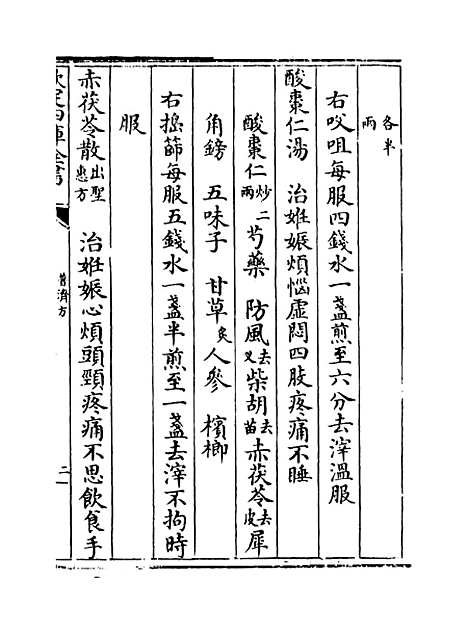 各半兩
右㕮咀每服四錢水一盞煎至六分去滓溫服
酸棗仁湯　治姙娠煩惱虛悶四肢疼痛不睡
酸棗仁炒二兩　芍藥　防風去叉　柴胡去苗　赤茯苓去皮　犀
角鎊　五味子　甘草炙　人參　檳榔
右搗篩每服五錢水一盞半煎至一盞去滓不拘時
服
赤茯苓散出聖惠方　治姙娠心煩頭頸疼痛不思飲食手
欽定四庫全書
普濟方
二